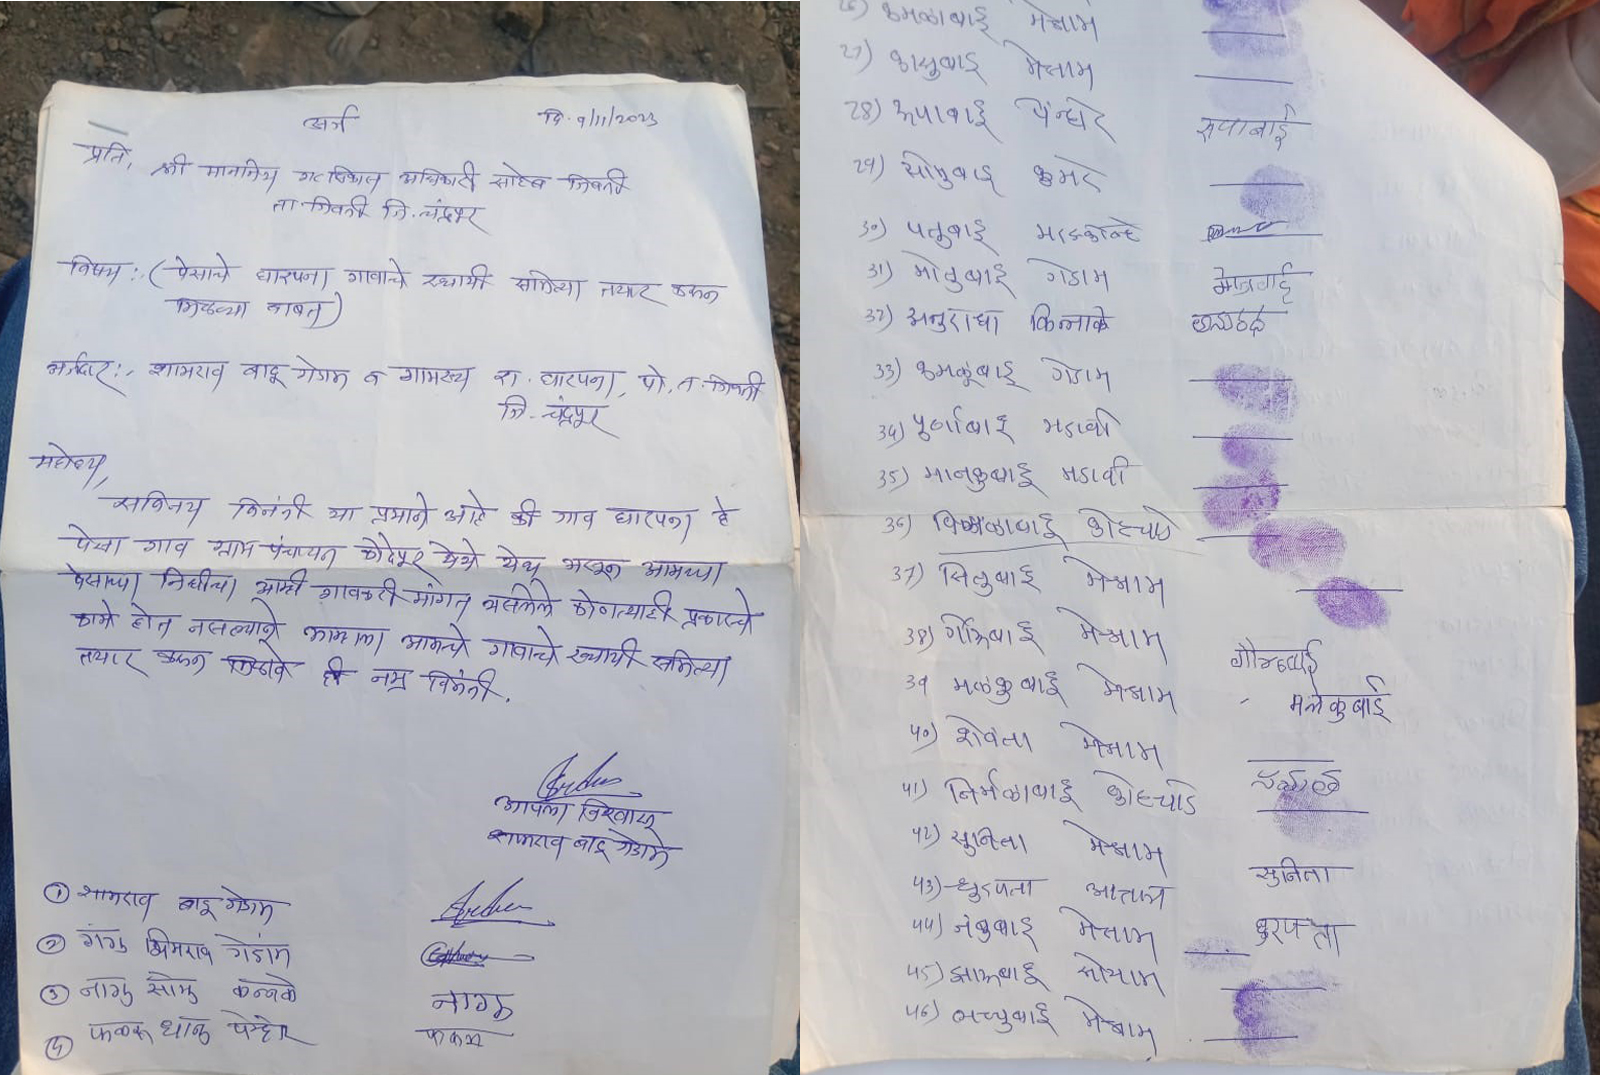 अर्ज दि. 9/11/2023
प्रति,
श्री माननिय गटविकास अधिकारी साहेब जिवती
ता जिवती जि. चंद्रपूर
विषय :- (पेसाचे घारपना गावाचे स्थायी समित्या तयार करून
मिळण्या बाबत)
अर्जदार :- शामराव बाडू गेडाम व गामस्थ रा. घारपना, पो. ता. जिवती
जि. चंद्रपूर
महोदय,
सविनय विनंती या प्रमाने आहे की गाव घारपना हे
पेसा गाव ग्राम पंचायत कोदेपूर येथे येथ असून आमच्या
पेसाच्या निधीचा आम्ही गावकरी मांगत असलेले कोणत्याही प्रकारचे
कामे होत नसल्याने आम्हाला आमचे गावाचे स्थायी समित्या
तयार करून मिळावे ही नम्र विनंती.
आपला विश्वासू
शामराव बाडू गेडाम
① शामराव बाडू गेडाम
② गंगु भिमराव गेडाम
③ नागु सोमु कन्नाके नागु
④ फकरू धानु पेन्दोर
26) कमळाबाई मेश्राम
27) कासुबाई मेश्राम
28) रूपाबाई पेन्दोर रूपाबाई
29) सोमुबाई कुमरे
30) पतुबाई
31) मोतुबाई गेडाम
32) अनुराधा किन्नाके
33) कमळुबाई गेडाम
34) पुर्णाबाई मडावी
35) मानकुबाई मडावी
36) विमळाबाई कोहचाडे
37) सितुबाई मेश्राम
38) मेश्राम
39 मळकुबाई मेश्राम मलकुबाई
40) शेवंता मेश्राम
41) निर्मळाबाई कोहचाडे
42) सुनिता मेश्राम सुनिता
43) धुरपता आत्राम धुरपता
44) मेश्राम
45) झामुबाई सोयाम
46) लच्चुबाई मेश्राम